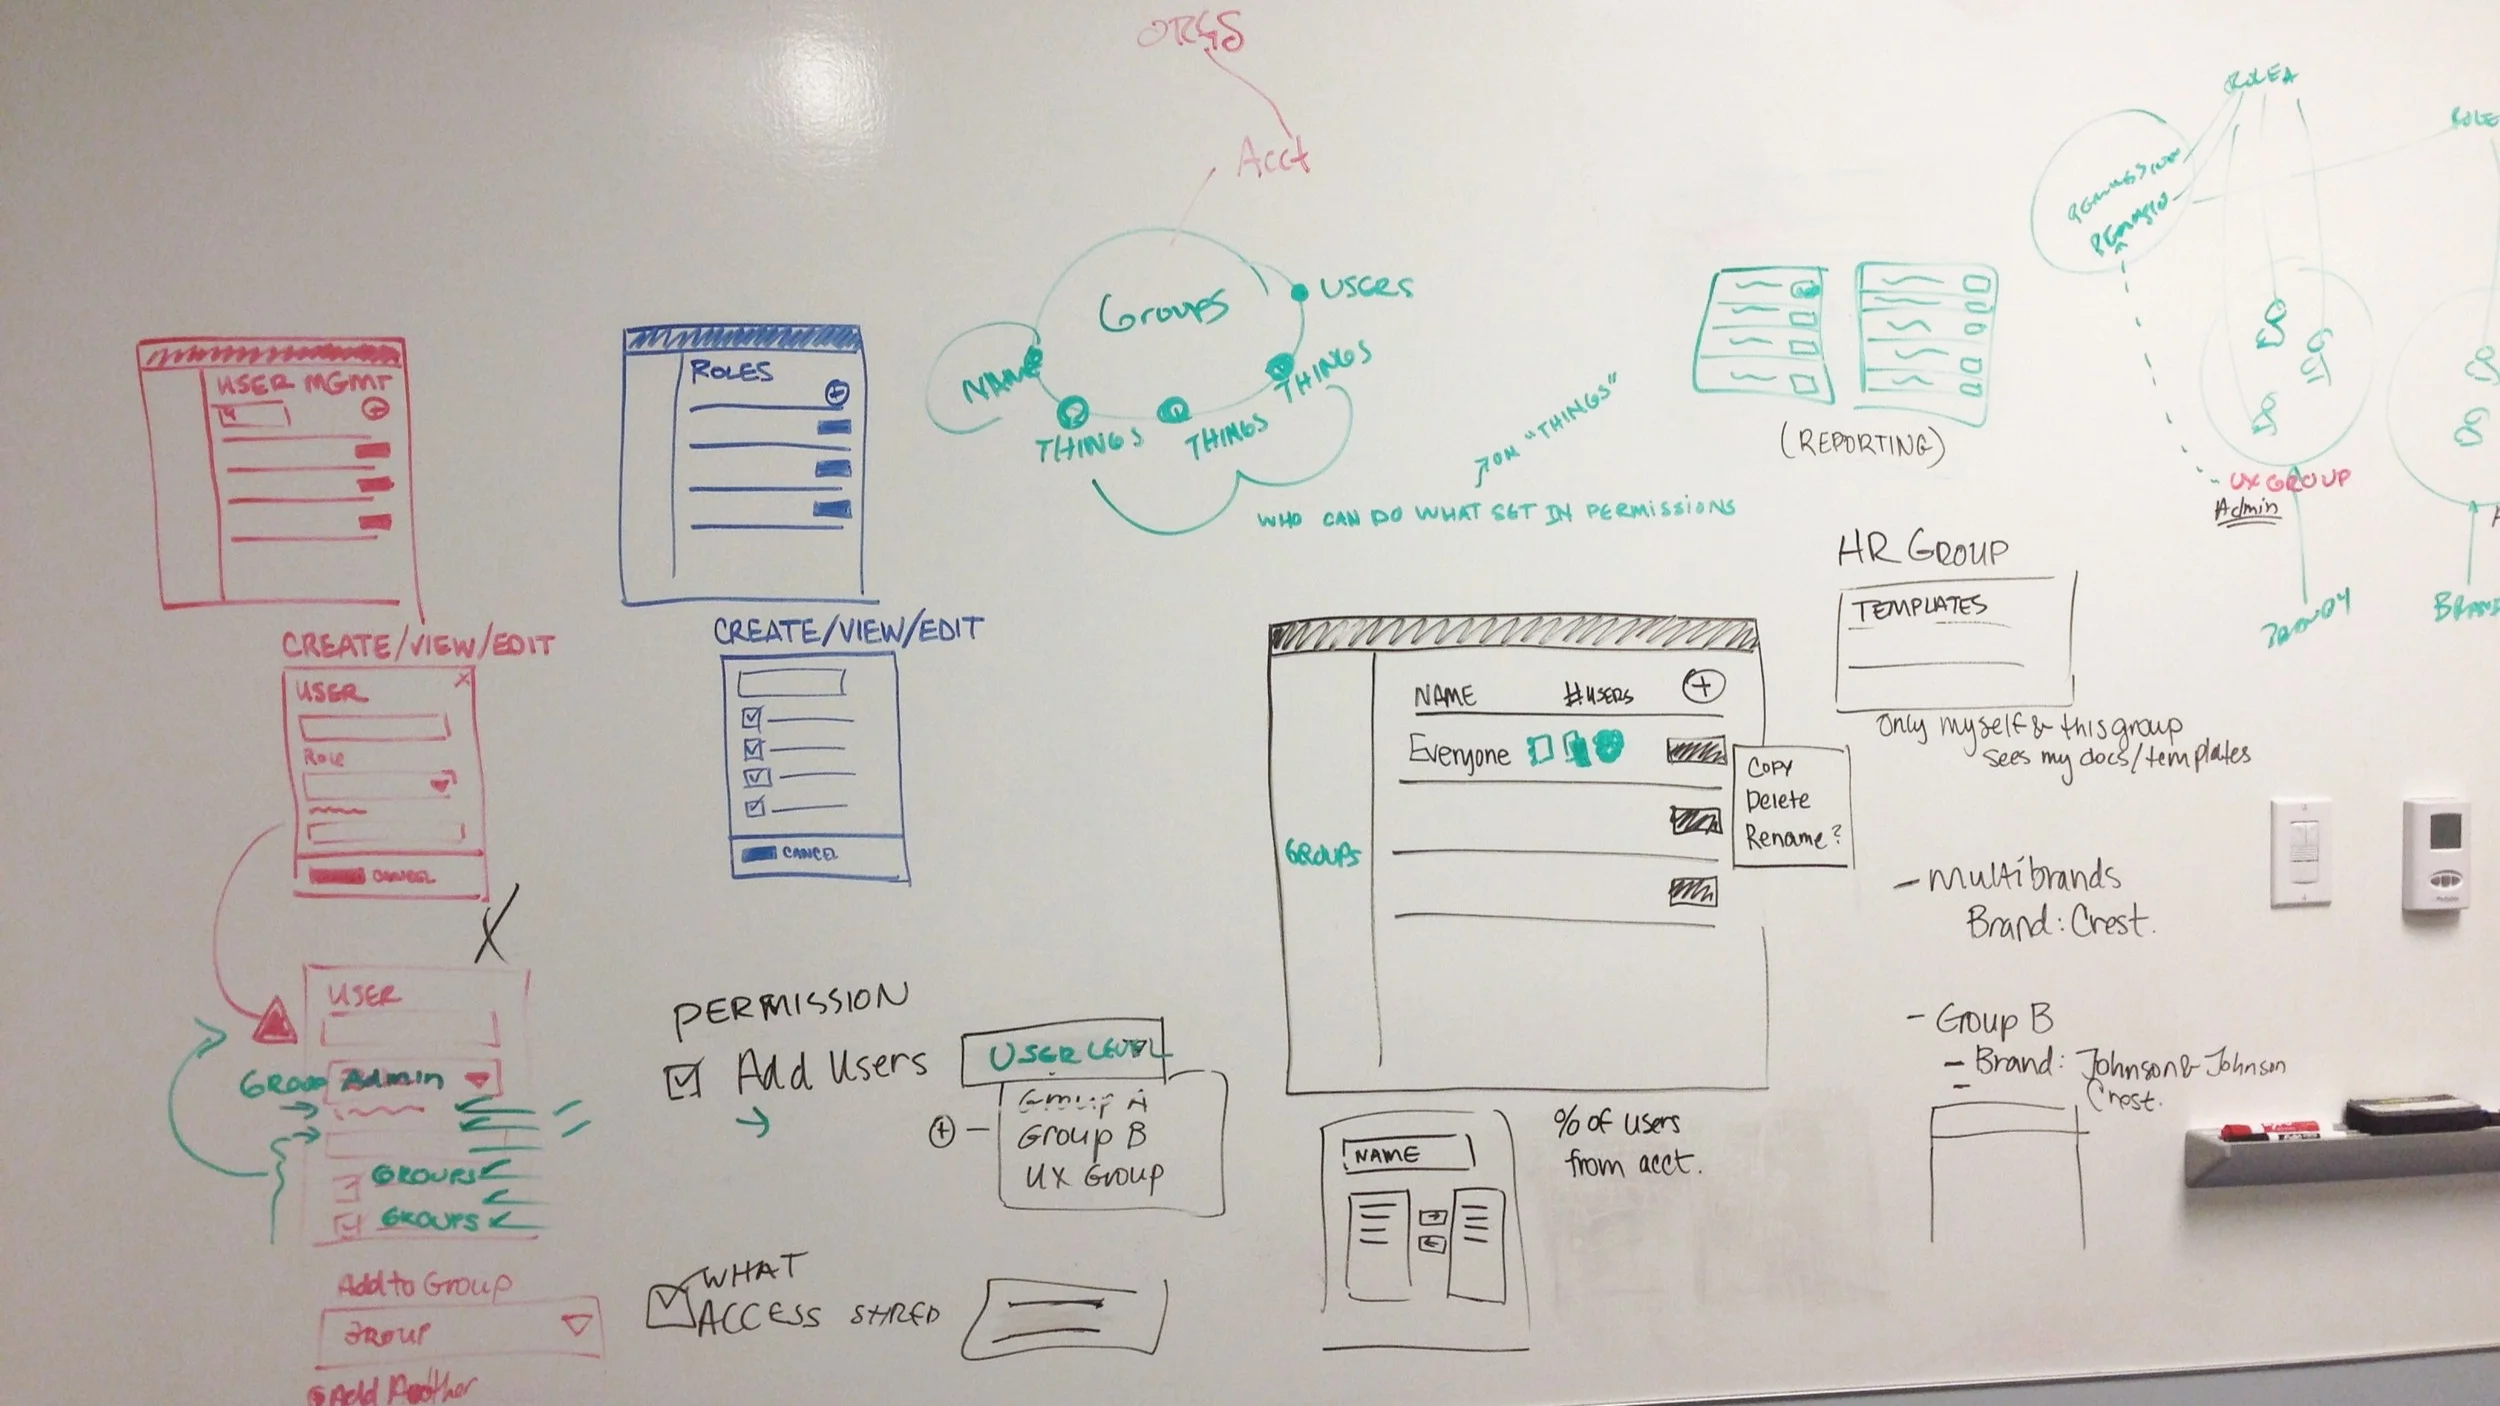 ORGS
Acct
Groups
USERS
NAME
THINGS
THINGS
THINGS
ON "THINGS"
WHO CAN DO WHAT SET IN PERMISSIONS
(REPORTING)
ROLE A
ROLE
PERMISSION
UX GROUP
Admin
BRAND
USER MGMT
CREATE/VIEW/EDIT
USER
X
Role
CANCEL
X
USER
GROUP Admin
GROUPS
GROUPS
Add to Group
GROUP
Add Another
ROLES
CREATE/VIEW/EDIT
CANCEL
PERMISSION
Add Users
USER LEVEL
Group A
Group B
UX Group
WHAT
ACCESS SHRED
GROUPS
NAME #USERS
Everyone
COPY
Delete
Rename?
NAME
% of users
from acct.
HR GROUP
TEMPLATES
Only myself & this group
sees my docs/templates
- Multibrands
Brand: Crest.
- Group B
- Brand: Johnson & Johnson
- Crest.